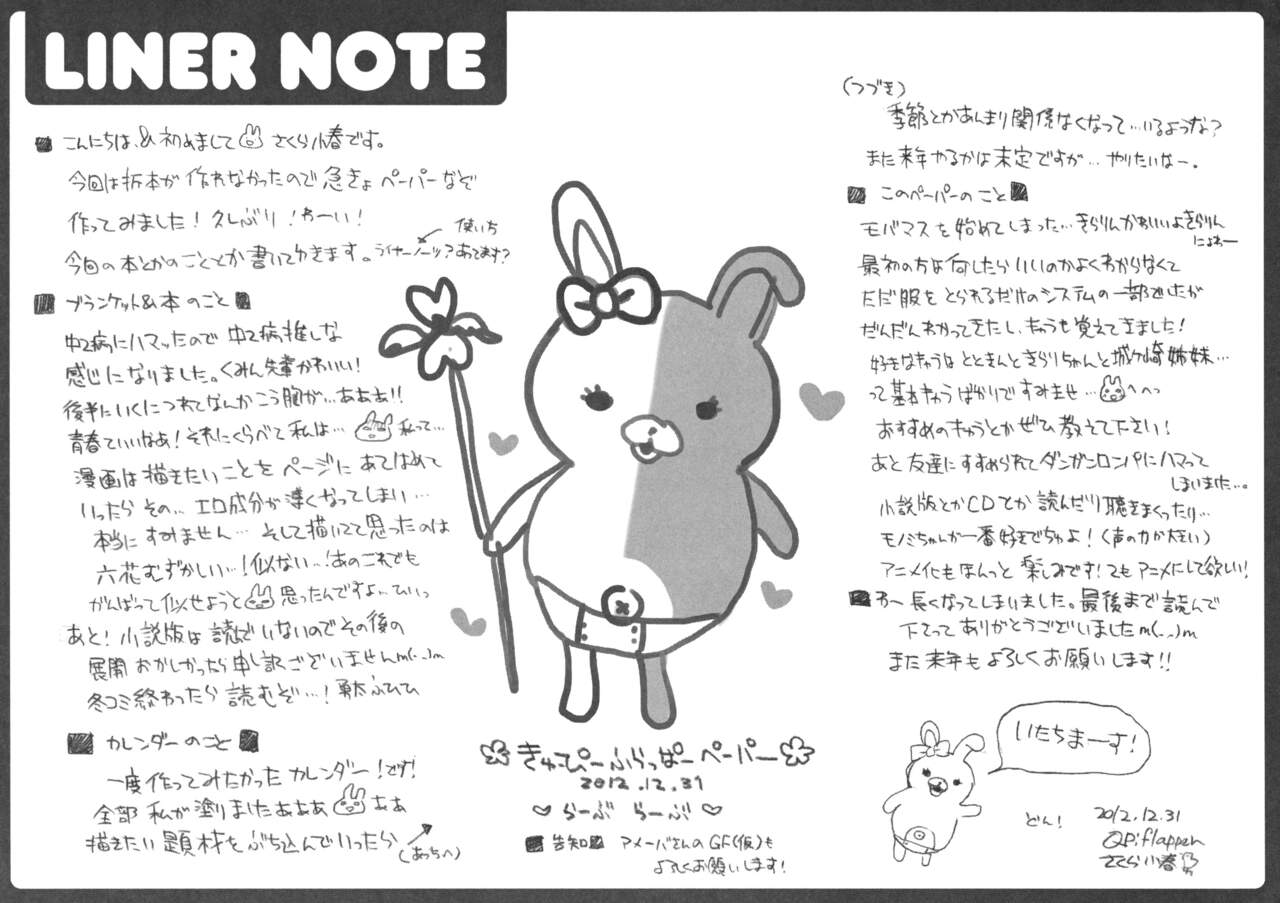 LINER NOTE
■ こんにちは、&初めまして さくら小春です。
今回は折本が作れなかったので急きょペーパーなぞ
作ってみました！久しぶり！わーい！
今回の本とかのこととか書いてゆきます。ライナーノーツ？あってます？
使いち
■ ブランケット&本のこと ■
中2病にハマったので中2病推しな
感じになりました。くみん先輩かわいい！
後半にいくにつれてなんかこう胸が…あああ!!
青春ていいなあ！それにくらべて私は… 私って…
漫画は描きたいことをページにあてはめて
いったらその… エロ成分が薄くなってしまい…
本当にすみません… そして描いてて思ったのは
六花むずかしい…！似ない…！あのこれでも
がんばって似せようと 思ったんですよ…ひいっ
あと！小説版は読んでいないのでその後の
展開おかしかったら申し訳ございませんm(..)m
冬コミ終わったら読むぞ…！勇太ふひひ
■ カレンダーのこと ■
一度作ってみたかったカレンダー！です！
全部私が塗りましたあああ ああ
描きたい題材をぶち込んでいったら
(あっちへ)
きゅーぴーふらっぱーペーパー
2012.12.31
らーぶ らーぶ
■ 告知 ■ アメーバさんのGF(仮)も
よろしくお願いします！
(つづき)
季節とかあんまり関係なくなって…いるような？
また来年やるかは未定ですが… やりたいなー。
■ このペーパーのこと ■
モバマスを始めてしまった…きらりんかわいいよきらりん
にょわー
最初の方は何したらいいのかよくわからなくて
ただ服をとられるだけのシステムの一部だったが
だんだんわかってきたし、キャラも覚えてきました！
好きなキャラはとときんときらりちゃんと城ヶ崎姉妹…
って基本キャラばかりですみませ… へへっ
おすすめのキャラとかぜひ教えて下さい！
あと友達にすすめられてダンガンロンパにハマって
しまいました…。
小説版とかCDとか読んだり聴きまくったり…
モノミちゃんが一番好きでちゅよ！(声の力が大きい)
アニメ化もほんっと楽しみです！2もアニメにして欲しい！
■ わー長くなってしまいました。最後まで読んで
下さってありがとうございましたm(..)m
また来年もよろしくお願いします!!
いたちまーす！
どん！
2012.12.31
QP:flapper
さくら小春